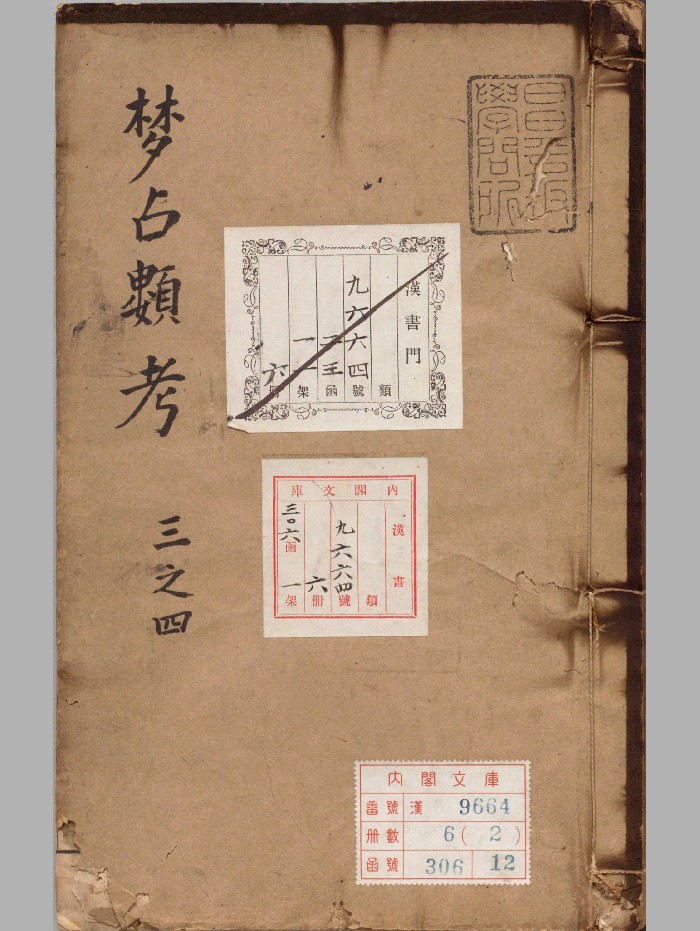 昌平坂
學問所
梦占類考
三之四
漢書門
類
九六六四號
函
架
六冊
内閣文庫
漢書
類
九六六四號
六冊
三〇六函
一架
内閣文庫
番號 漢 9664
冊數 6(2)
函號 306 12